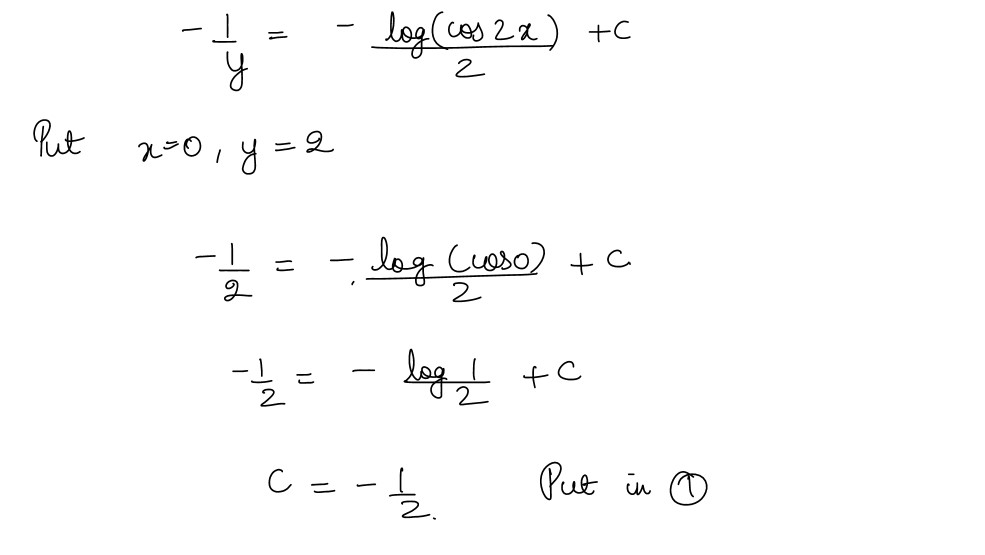 -1/y = - log(cos 2x)/2 + C
Put x=0, y = 2
-1/2 = - log (cos0)/2 + C
-1/2 = - log 1/2 + C
C = - 1/2. Put in ①